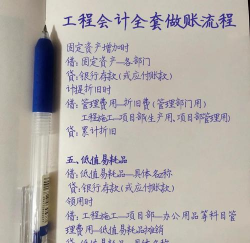 工程会计全套做账流程
固定资产增加时
借:固定资产—各部门
贷:银行存款(或应付账款)
计提折旧时
借:管理费用—折旧费(管理部门用)
工程施工—项目部(生产用、项目部管理用)
贷:累计折旧
五、低值易耗品
借:低值易耗品—具体名称
贷:银行存款(或应付账款)
领用时
借:工程施工—项目部—办公用品等科目管
贷:低值易耗品摊销